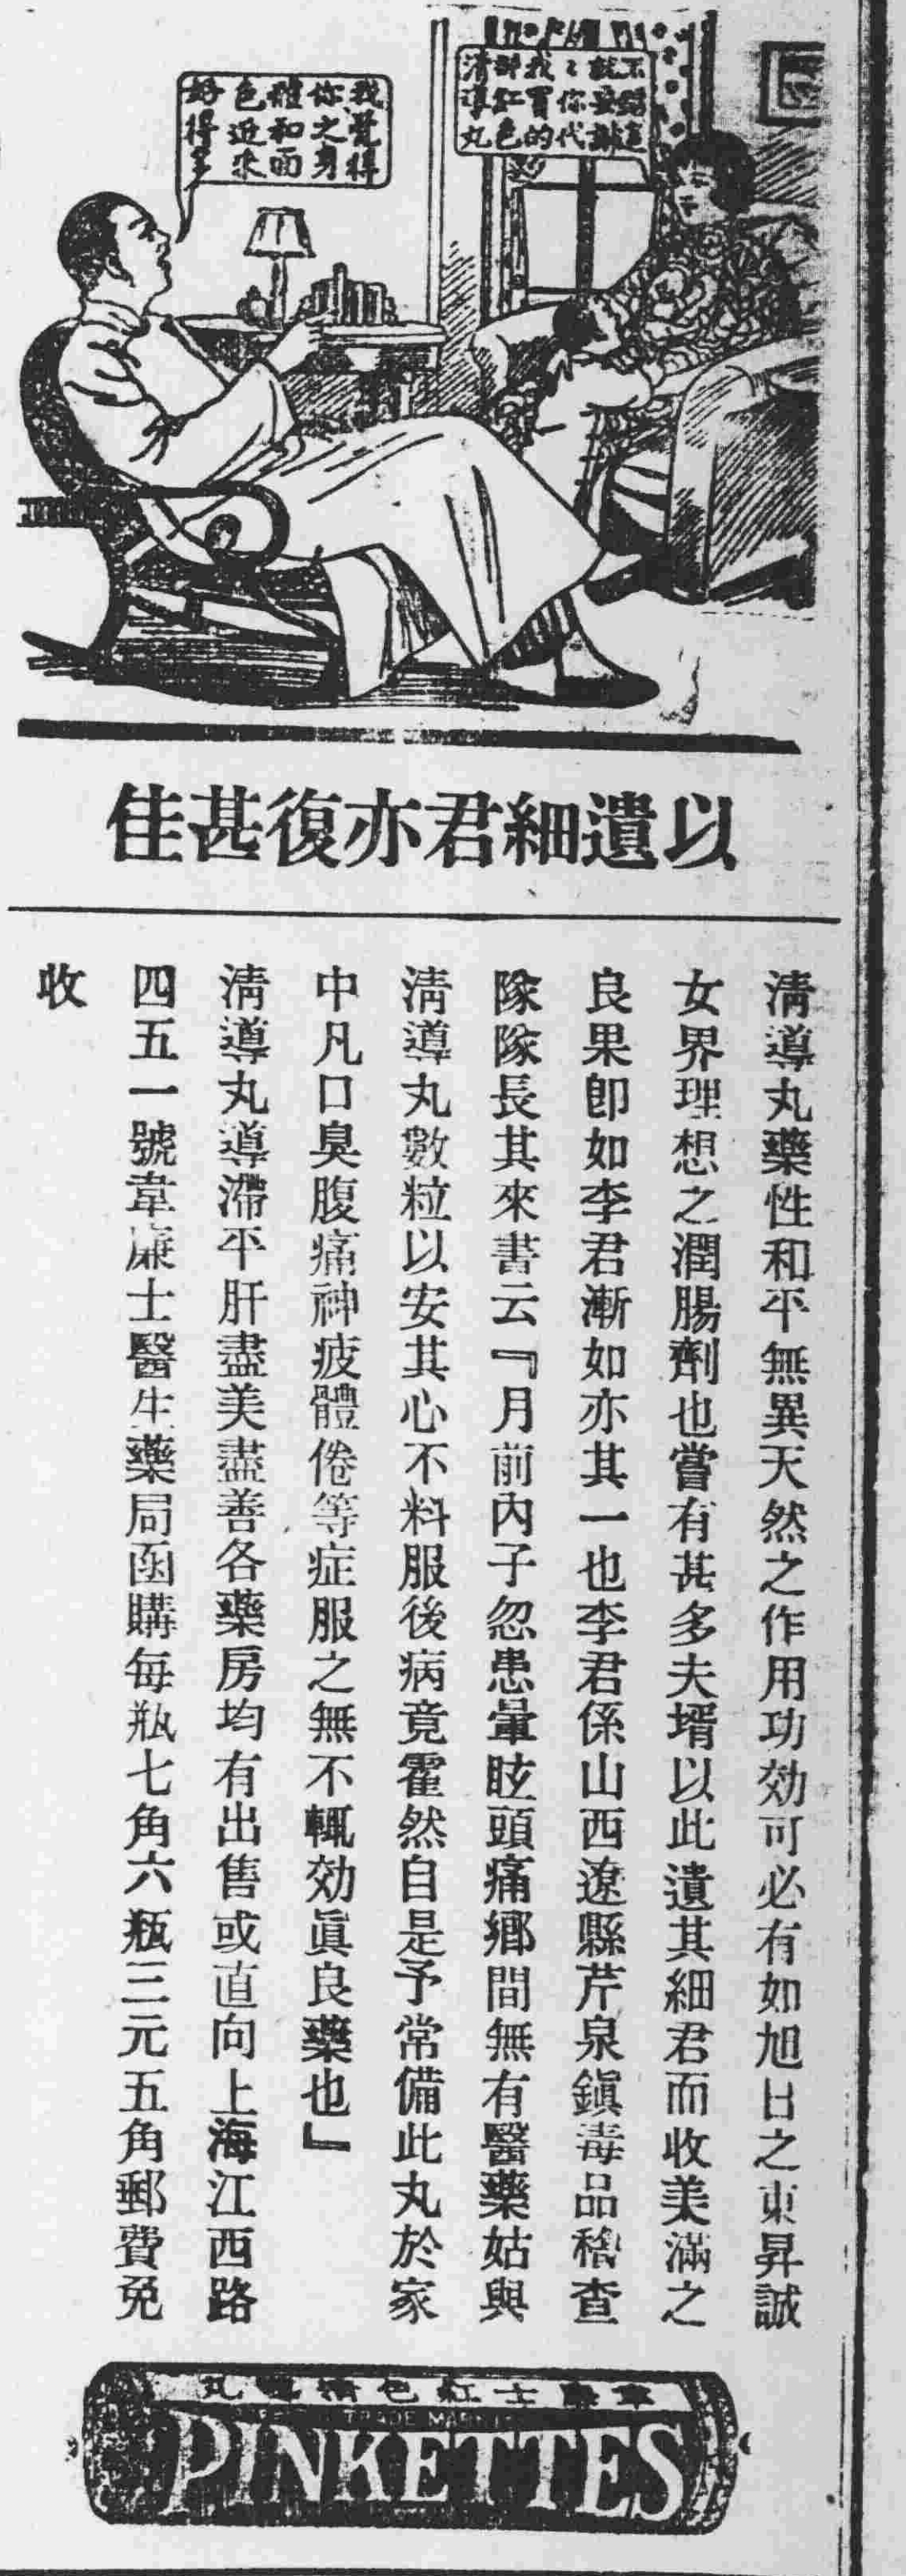 不錯這
就要謝
謝你代
我買的
那紅色
清導丸
我覺得
你之身
體和面
色近來
好得多
以遺細君亦復甚佳
清導丸藥性和平無異天然之作用功効可必有如旭日之東昇誠
女界理想之潤腸劑也嘗有甚多夫壻以此遺其細君而收美滿之
良果卽如李君漸如亦其一也李君係山西遼縣芹泉鎭毒品稽查
隊隊長其來書云『月前內子忽患暈眩頭痛鄉間無有醫藥姑與
清導丸數粒以安其心不料服後病竟霍然自是予常備此丸於家
中凡口臭腹痛神疲體倦等症服之無不輒効眞良藥也』
清導丸導滯平肝盡美盡善各藥房均有出售或直向上海江西路
四五一號韋廉士醫生藥局函購每瓶七角六瓶三元五角郵費免
收
韋廉士紅色清導丸
TRADE MARK
PINKETTES